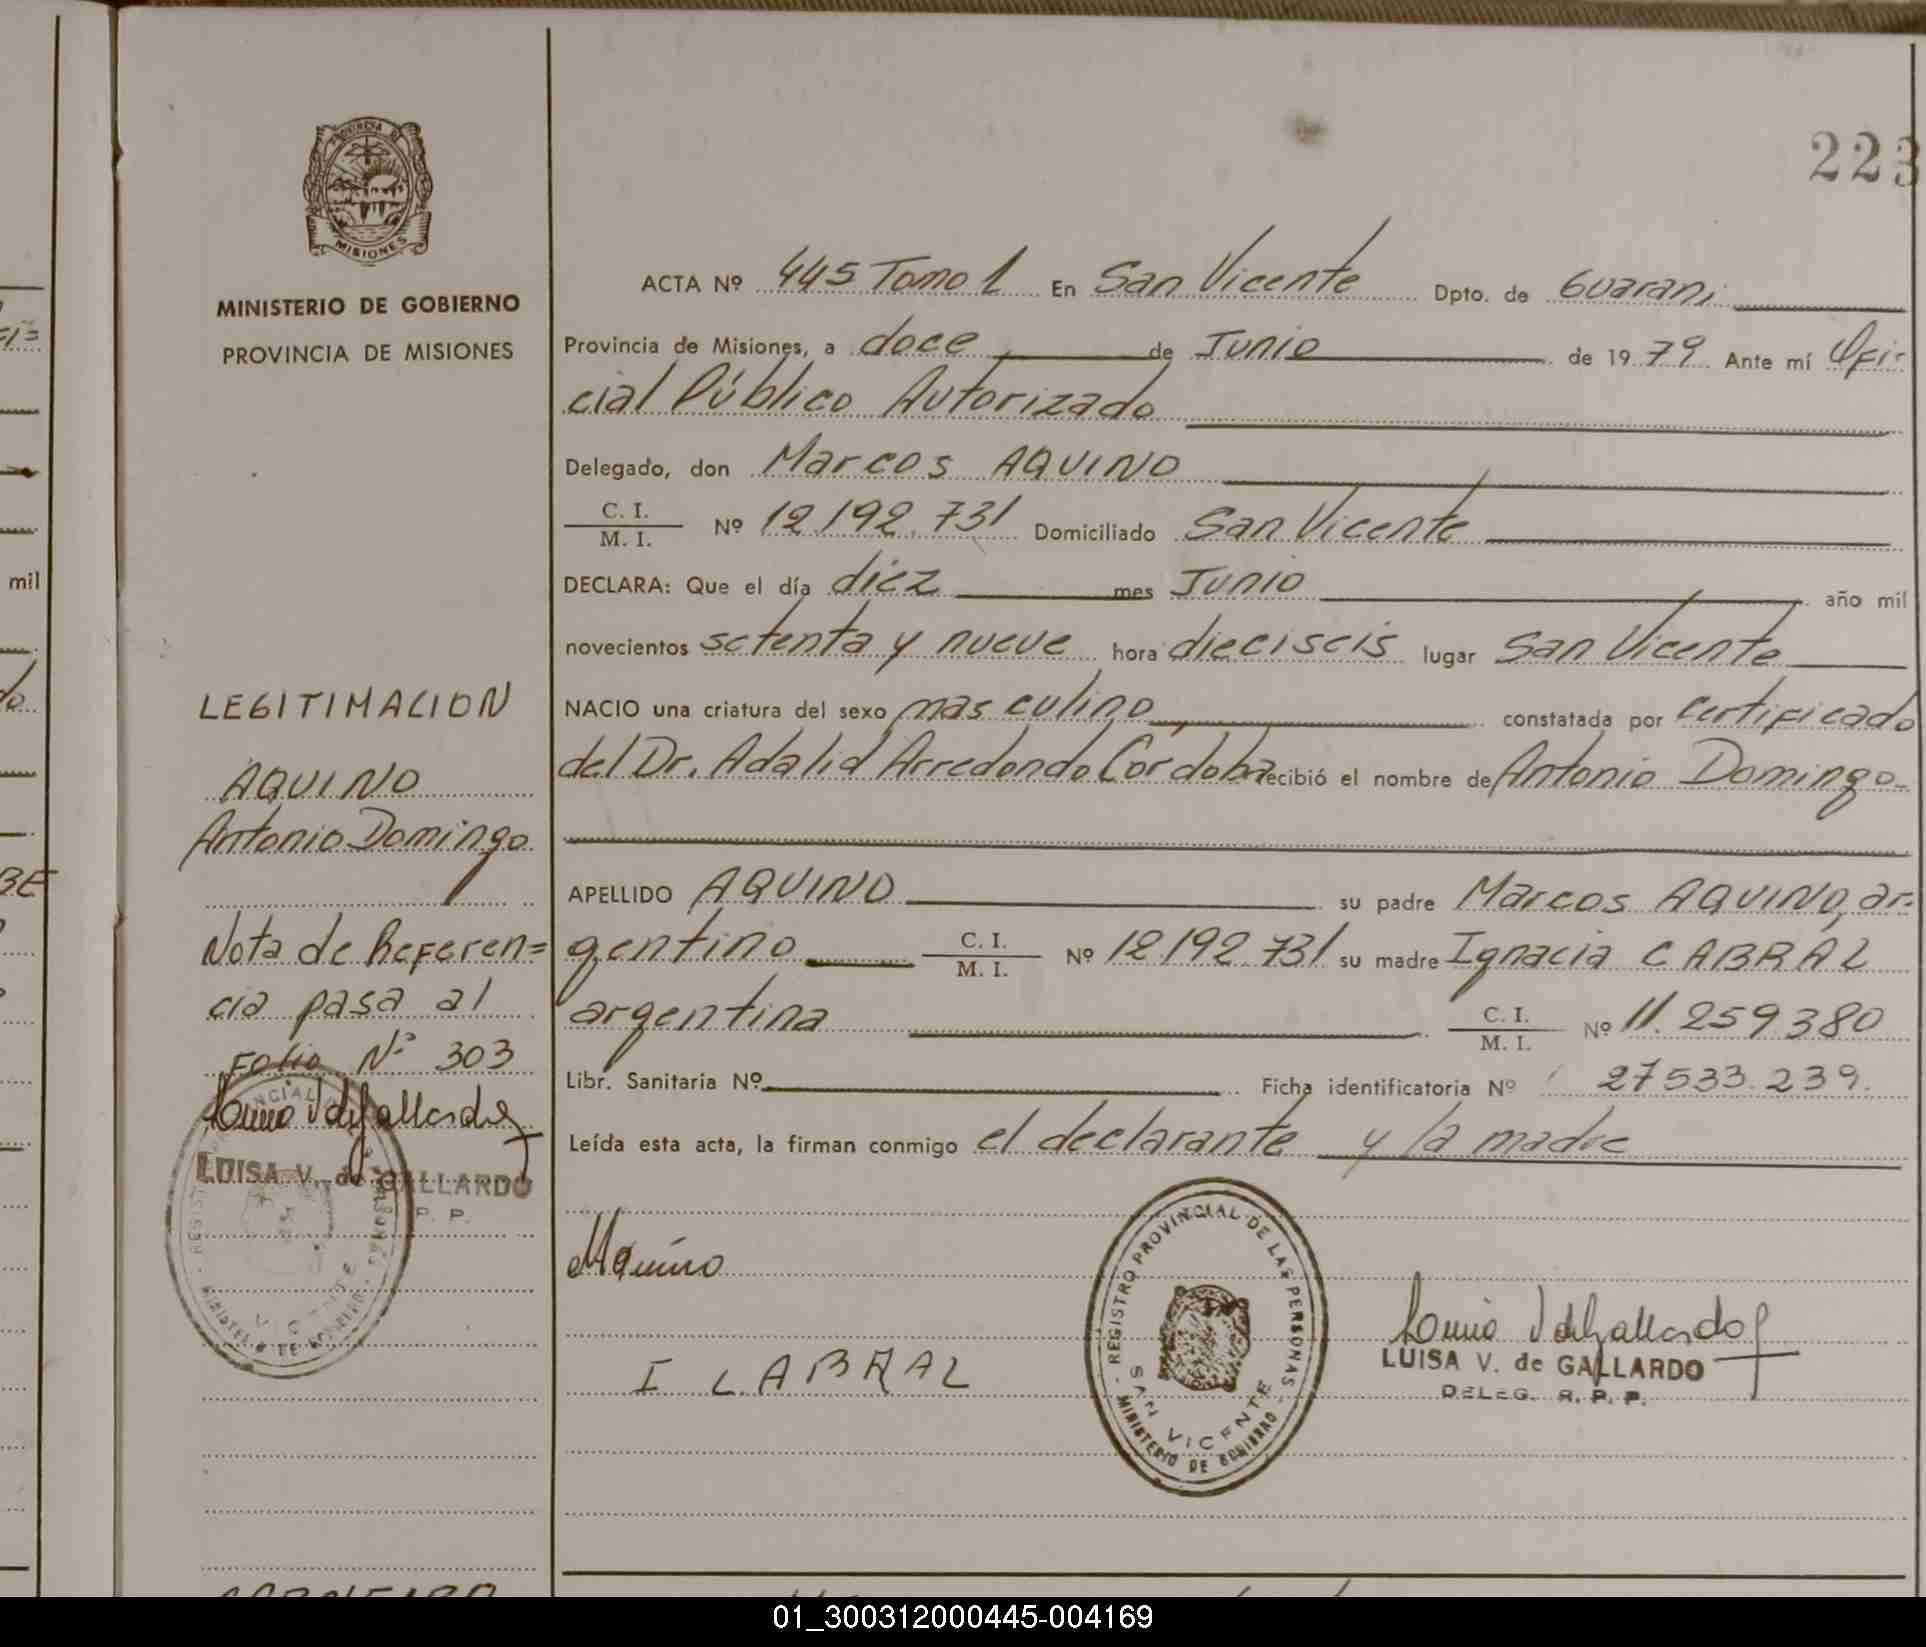 223
PROVINCIA DE
MISIONES
MINISTERIO DE GOBIERNO
PROVINCIA DE MISIONES
ACTA Nº 445 Tomo 1 En San Vicente Dpto. de Guarani
Provincia de Misiones, a doce de Junio de 1979 Ante mí Ofi-
cial Público Autorizado
Delegado, don Marcos AQUINO
C. I.
M. I. Nº 12.192.731 Domiciliado San Vicente
DECLARA: Que el día diez mes Junio año mil
novecientos setenta y nueve hora dieciseis lugar San Vicente
NACIO una criatura del sexo masculino constatada por certificado
del Dr. Adalid Arredondo Córdoba recibió el nombre de Antonio Domingo-
APELLIDO AQUINO su padre Marcos AQUINO, ar-
gentino C. I.
M. I. Nº 12.192.731 su madre Ignacia CABRAL
argentina C. I.
M. I. Nº 11.259.380
Libr. Sanitaria Nº Ficha identificatoria Nº 27.533.239.
Leída esta acta, la firman conmigo el declarante y la madre
MAquino
I CABRAL
REGISTRO PROVINCIAL DE LAS PERSONAS
SAN VICENTE
MINISTERIO DE GOBIERNO
LUISA V. de GALLARDO
DELEG. R. P. P.
LEGITIMACION
AQUINO
Antonio Domingo
Nota de Referen=
cia pasa al
Folio Nº 303
LUISA V. de GALLARDO
P. P.
VICENTE
mil
BE
01_300312000445-004169